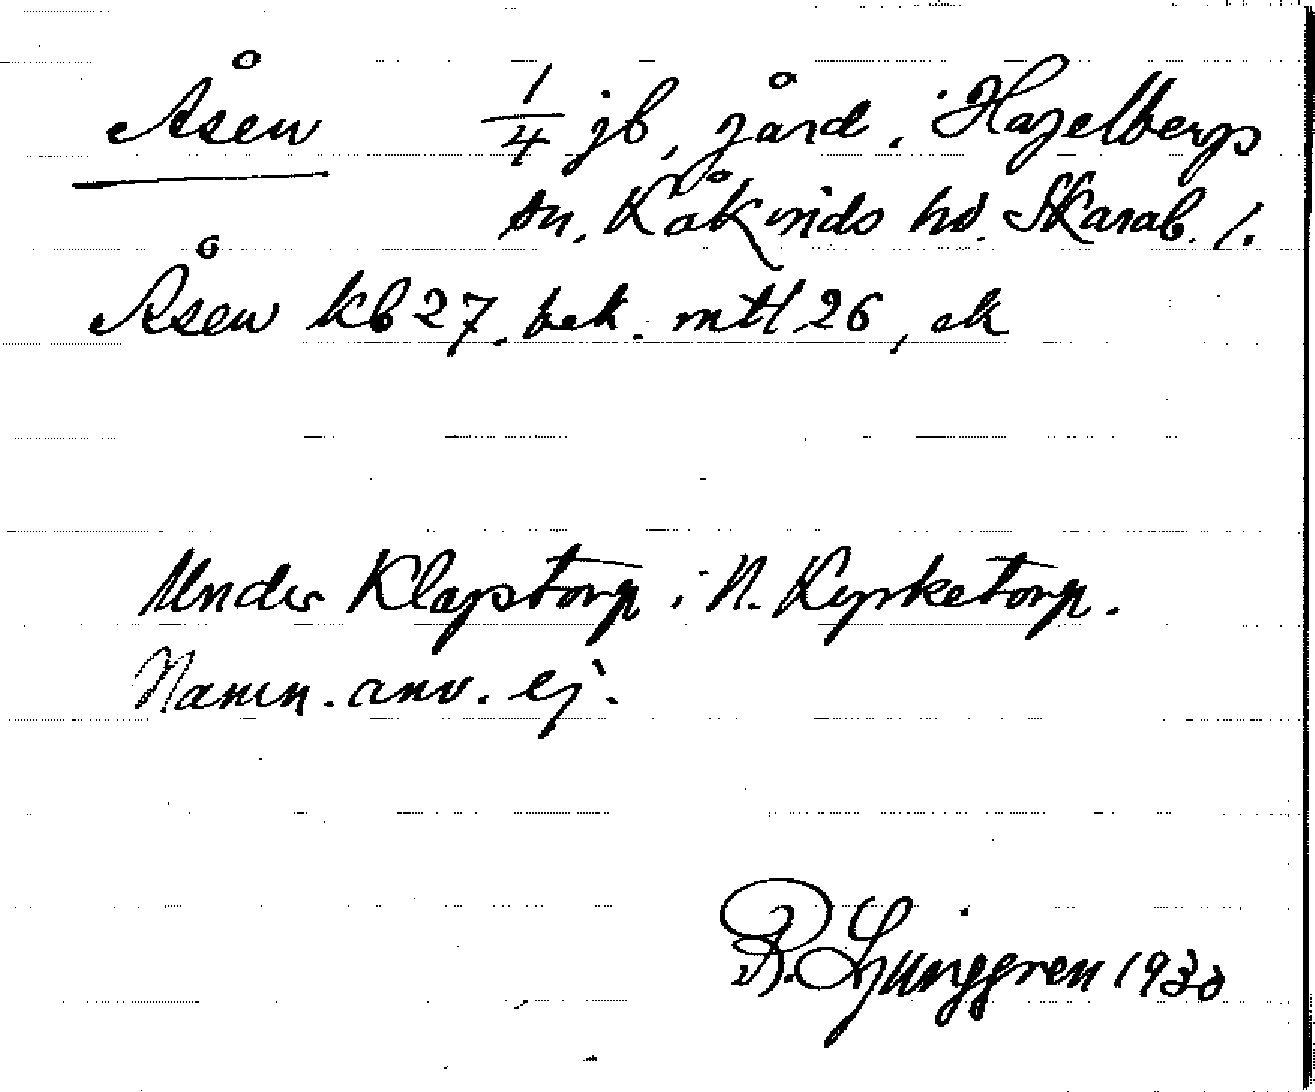 Åsen 1/4 jb, gård. i Hagelbergs
sn. Kåkinds hd. Skarab. l.
Åsen kb 27. bek. mtl 26, ek
Under Klapstorp i N. Kyrketorp.
Namn. anv. ej.
R. Ljunggren 1930